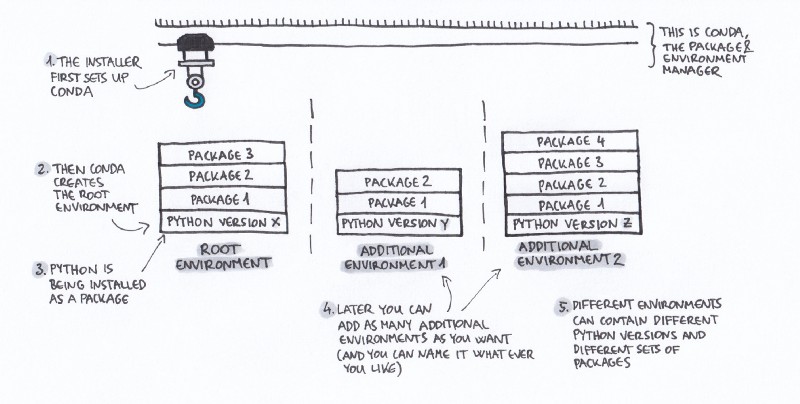 1. THE INSTALLER
FIRST SETS UP
CONDA
THIS IS CONDA,
THE PACKAGE&
ENVIRONMENT
MANAGER
2. THEN CONDA
CREATES
THE ROOT
ENVIRONMENT
3. PYTHON IS
BEING INSTALLED
AS A PACKAGE
PACKAGE 3
PACKAGE 2
PACKAGE 1
PYTHON VERSION X
ROOT
ENVIRONMENT
PACKAGE 2
PACKAGE 1
PYTHON VERSION Y
ADDITIONAL
ENVIRONMENT 1
PACKAGE 4
PACKAGE 3
PACKAGE 2
PACKAGE 1
PYTHON VERSION Z
ADDITIONAL
ENVIRONMENT 2
4. LATER YOU CAN
ADD AS MANY ADDITIONAL
ENVIRONMENTS AS YOU WANT
(AND YOU CAN NAME IT WHAT EVER
YOU LIKE)
5. DIFFERENT ENVIRONMENTS
CAN CONTAIN DIFFERENT
PYTHON VERSIONS AND
DIFFERENT SETS OF
PACKAGES